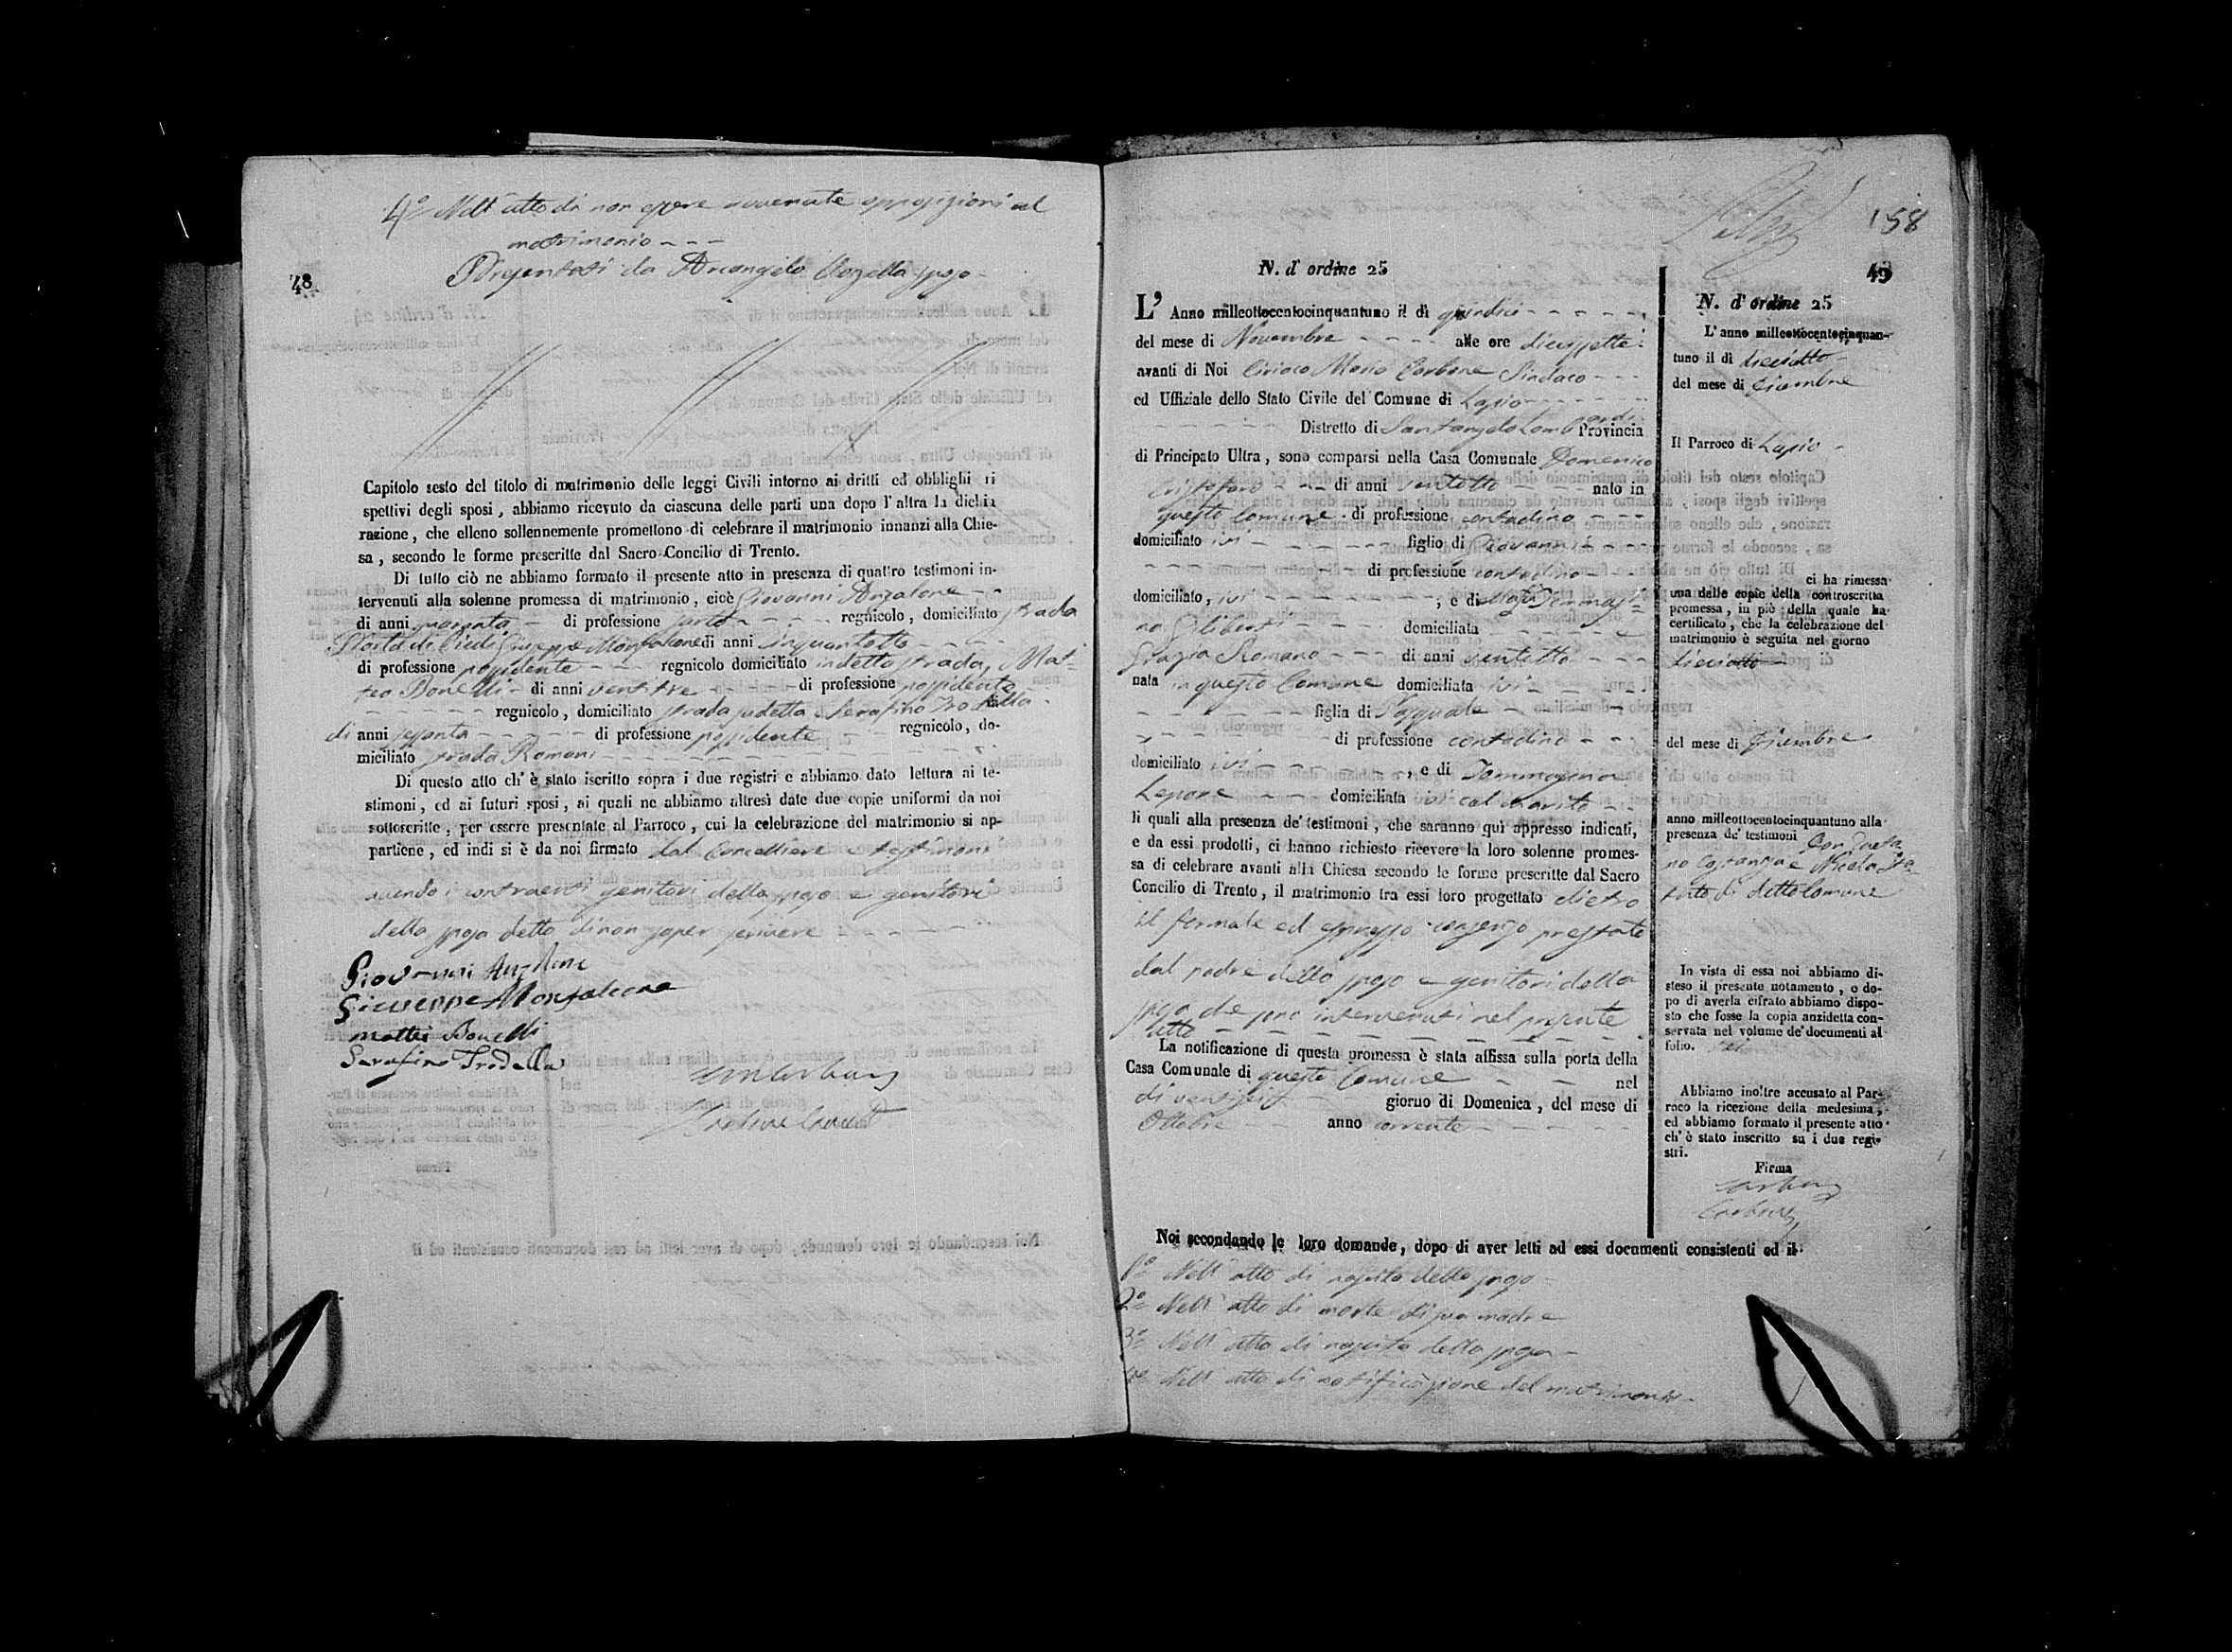 4º Nell' atto di non essere avvenute opposizioni al
matrimonio
Presentati da Arcangelo sposo
48
Capitolo sesto del titolo di matrimonio delle leggi Civili intorno ai dritti ed obblighi ri
spettivi degli sposi, abbiamo ricevuto da ciascuna delle parti una dopo l'altra la dichia
razione, che elleno sollennemente promettono di celebrare il matrimonio innanzi alla Chie-
sa, secondo le forme prescritte dal Sacro Concilio di Trento.
Di tutto ciò ne abbiamo formato il presente atto in presenza di quattro testimoni in-
tervenuti alla solenne promessa di matrimonio, cioè Giovanni Anzalone
di anni quaranta di professione sarto regnicolo, domiciliato strada
Giuseppe Monsalone di anni cinquantotto
di professione possidente regnicolo domiciliato in detta strada, Mat-
teo Bonelli di anni ventitre di professione possidente
regnicolo, domiciliato strada sudetta Serafino Trodella
di anni sessanta di professione possidente regnicolo, do-
miciliato strada Romani
Di questo atto ch' è stato iscritto sopra i due registri e abbiamo dato lettura ai te-
stimoni, ed ai futuri sposi, ai quali ne abbiamo altresì date due copie uniformi da noi
sottoscritte, per essere presentate al Parroco, cui la celebrazione del matrimonio si ap-
partiene, ed indi si è da noi firmato dal Cancelliere e testimoni
avendo i contraenti genitori dello sposo e genitori
della sposa detto di non saper scrivere
Giovanni Anzalone
Giuseppe Monsalone
Mattei Bonelli
Serafino Trodella
158
49
N. d' ordine 25
L' Anno milleottocentocinquantuno il dì quindici
del mese di Novembre alle ore diecissette
avanti di Noi Ciriaco Maria Carbone Sindaco
ed Uffiziale dello Stato Civile del Comune di Lapio
Distretto di Santangelo Lombardi Provincia
di Principato Ultra, sono comparsi nella Casa Comunale Domenico
Cristofaro di anni ventotto nato in
questo Comune di professione contadino
domiciliato ivi figlio di Giovanni
di professione contadino
domiciliato, ivi ; e di
Giliberti domiciliata
Grazia Romano di anni ventotto
nata in questo Comune domiciliata ivi
figlia di Pasquale
di professione contadino
domiciliato ivi , e di Tommasina
Lepore domiciliata ivi col marito
li quali alla presenza de' testimoni, che saranno quì appresso indicati,
e da essi prodotti, ci hanno richiesto ricevere la loro solenne promes-
sa di celebrare avanti alla Chiesa secondo le forme prescritte dal Sacro
Concilio di Trento, il matrimonio tra essi loro progettato dietro
il formale ed espresso consenso prestato
dal padre dello sposo e genitori della
sposa che sono intervenuti nel presente
atto
La notificazione di questa promessa è stata affissa sulla porta della
Casa Comunale di questo Comune nel
di ventisei giorno di Domenica, del mese di
Ottobre anno corrente
Noi secondando le loro domande, dopo di aver letti ad essi documenti consistenti ed il
1º Nell' atto di nascita dello sposo
2º Nell' atto di morte di sua madre
3º Nell' atto di nascita della sposa
4º Nell' atto di notificazione del matrimonio
N. d' ordine 25
L' anno milleottocentocinquan-
tuno il dì dieciotto
del mese di Dicembre
Il Parroco di Lapio
ci ha rimessa
una delle copie della controscritta
promessa, in piè della quale ha
certificato, che la celebrazione del
matrimonio è seguita nel giorno
dieciotto
del mese di Dicembre
anno milleottocentocinquantuno alla
presenza de' testimoni
di detto Comune
In vista di essa noi abbiamo di-
steso il presente notamento, e do-
po di averla cifrato abbiamo dispo-
sto che fosse la copia anzidetta con-
servata nel volume de' documenti al
folio.
Abbiamo inoltre accusato al Par-
roco la ricezione della medesima,
ed abbiamo formato il presente atto
ch' è stato inscritto su i due regi-
stri.
Firma